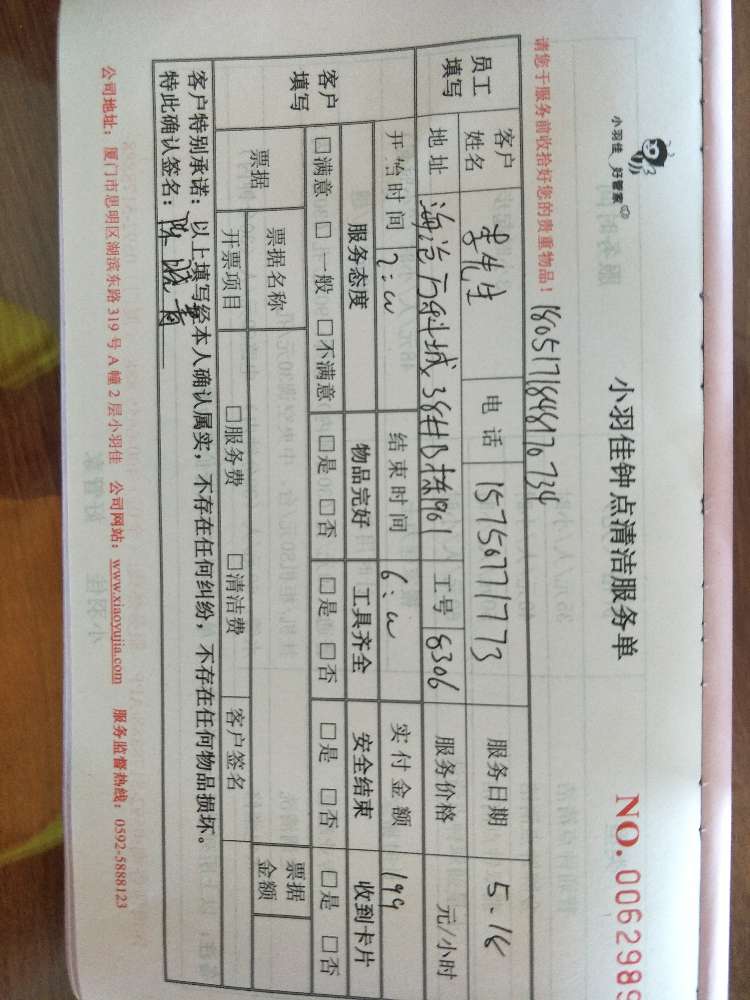 小羽佳 好管家
小羽佳钟点清洁服务单
NO. 0062989
请您于服务前收拾好您的贵重物品！ 180517184817 0734
员工填写 客户姓名 李先生 电话 15750771773 服务日期 5.18
地址 海沧万科城38井B栋1901 工号 8306 服务价格 元/小时
开始时间 2:00 结束时间 6:00 实付金额 199
客户填写 服务态度 物品完好 工具齐全 安全结束 收到卡片
□满意 □一般 □不满意 □是 □否 □是 □否 □是 □否 □是 □否
票据 票据名称 票据金额
开票项目 □服务费 □清洁费 客户签名
客户特别承诺：以上填写经本人确认属实，不存在任何纠纷，不存在任何物品损坏。
特此确认签名：
公司地址：厦门市思明区湖滨东路319号A幢2层小羽佳 公司网站：www.xiaoyujia.com 服务监督热线：0592-5888123